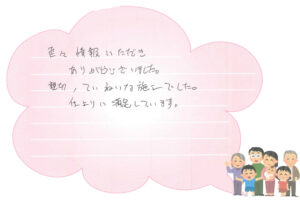 色々情報いただき
ありがとうございました。
親切、ていねいな施工でした。
仕上りに満足しています。